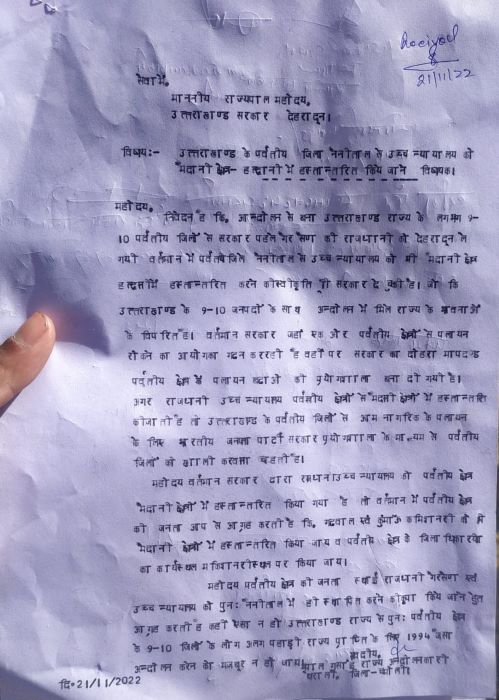 Received
21/11/22
सेवा में,
माननीय राज्यपाल महोदय,
उत्तराखण्ड सरकार देहरादून।
विषय:- उत्तराखण्ड के पर्वतीय जिला नैनीताल से उच्च न्यायालय को
मैदानी क्षेत्र- हल्द्वानी में हस्तान्तरित किये जाने विषयक।
महोदय,
निवेदन है कि, आन्दोलन से बना उत्तराखण्ड राज्य के लगभग 9-
10 पर्वतीय जिलों से सरकार पहले गैरसैण की राजधानी को देहरादून ले
गयी वर्तमान में पर्वतीय जिले नैनीताल से उच्च न्यायालय को भी मैदानी क्षेत्र
में हस्तान्तरित करने की स्वीकृति सरकार दे चुकी है। जो कि
उत्तराखण्ड के 9-10 जनपदों के साथ आन्दोलन में मिले राज्य के भावनाओं
के विपरित है। वर्तमान सरकार जहां एक और पर्वतीय क्षेत्रों से पलायन
रोकने का आयोग का गठन कर रही है वहीं पर सरकार का दोहरा मापदण्ड
पर्वतीय क्षेत्र के पलायन बढाओ की प्रयोगशाला बना दी गयी है।
अगर राजधानी उच्च न्यायालय पर्वतीय क्षेत्रों से मैदानी क्षेत्रों में हस्तान्तरित
की जाती है तो उत्तराखण्ड के पर्वतीय जिलों से आम नागरिक के पलायन
के लिए भारतीय जनता पार्टी सरकार प्रयोगशाला के माध्यम से पर्वतीय
जिलों को खाली करवाना चाहती है।
महोदय वर्तमान सरकार द्वारा उच्च न्यायालय को पर्वतीय क्षेत्र
मैदानी क्षेत्रों में हस्तान्तरित किया गया है तो वर्तमान में पर्वतीय क्षेत्र
की जनता आप से आग्रह करती है कि, गढवाल एवं कुमाऊं कमिश्नरी को भी
मैदानी क्षेत्रों में हस्तान्तरित किया जाय व पर्वतीय क्षेत्र के
का कार्यस्थल पर किया जाय।
महोदय पर्वतीय क्षेत्र की जनता स्थाई राजधानी गैरसैण एवं
उच्च न्यायालय को पुनः नैनीताल में ही स्थापित करने की कृपा किये जाने हेतु
आग्रह करती है कहीं ऐसा न हो उत्तराखण्ड राज्य से पुनः पर्वतीय क्षेत्र
के 9-10 जिलों के लोग अलग पहाड़ी राज्य प्राप्ति के लिए 1994 जैसा
आन्दोलन करने को मजबूर न हो जाय।
भवदीय,
राज्य आन्दोलनकारी
जिला-चमोली।
दि०-21/11/2022